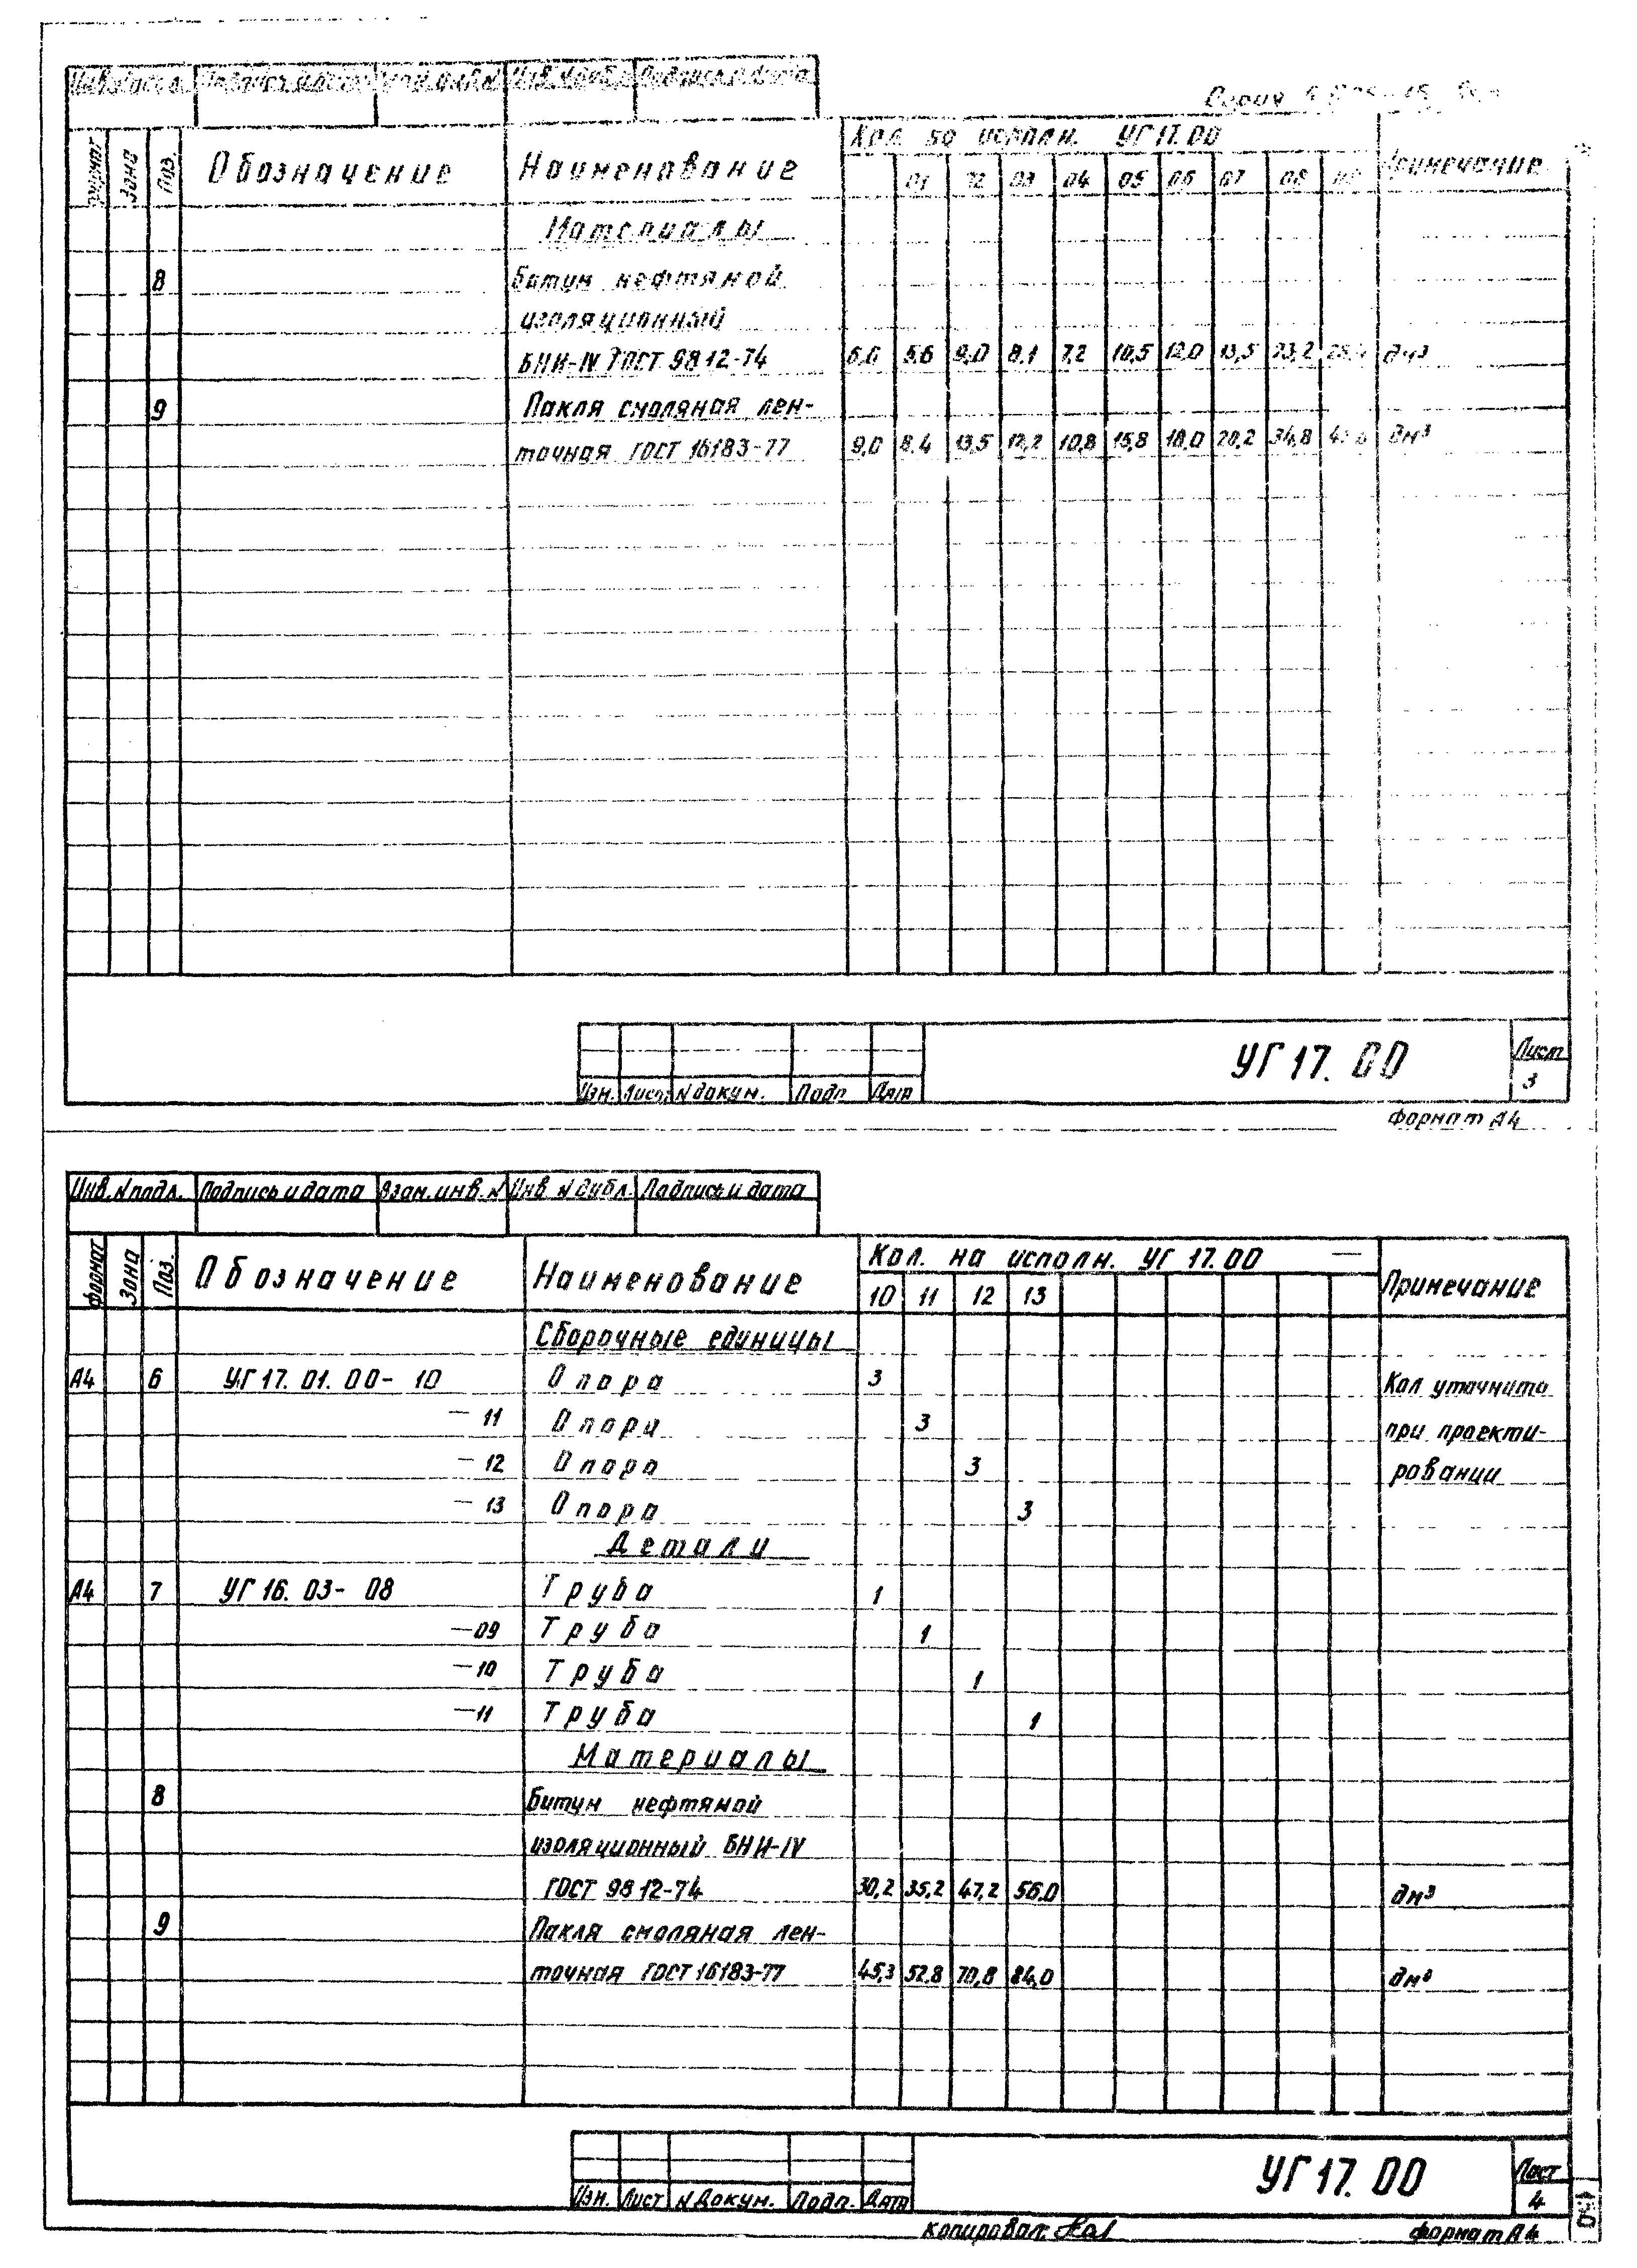 Серия
Инв. N подл. Подпись и дата Взам. инв. N Инв. N дубл. Подпись и дата
Формат Зона Поз. Обозначение Наименование Кол. на исполн. УГ 17.00 Примечание
01 02 03 04 05 06 07 08 09
Материалы
8 Битум нефтяной
изоляционный
БНИ-IV ГОСТ 9812-74 6,0 5,6 9,0 8,1 7,2 10,5 12,0 13,5 23,2 дм³
9 Пакля смоляная лен-
точная ГОСТ 16183-77 9,0 8.4 13,5 12,2 10,8 15,8 18,0 20,2 34,8 дм³
УГ 17. 00 Лист
3
Изм. Лист N докум. Подп Дата
Формат А4
Инв. N подл. Подпись и дата Взам. инв. N Инв N дубл. Подпись и дата
Формат Зона Поз. Обозначение Наименование Кол. на исполн. УГ 17.00 — Примечание
10 11 12 13
Сборочные единицы
А4 6 УГ 17. 01. 00- 10 Опора 3 Кол уточнить
— 11 Опора 3 при проекти-
— 12 Опора 3 ровании
— 13 Опора 3
Детали
А4 7 УГ 16. 03- 08 Труба 1
—09 Труба 1
—10 Труба 1
—11 Труба 1
Материалы
8 Битум нефтяной
изоляционный БНИ-IV
ГОСТ 9812-74 30,2 35,2 47,2 56.0 дм³
9 Пакля смоляная лен-
точная ГОСТ 16183-77 45,3 52.8 70,8 84,0 дм³
УГ 17. 00 Лист
4
Изм. Лист N Докум. Подп. Дата
копировал: формат А4